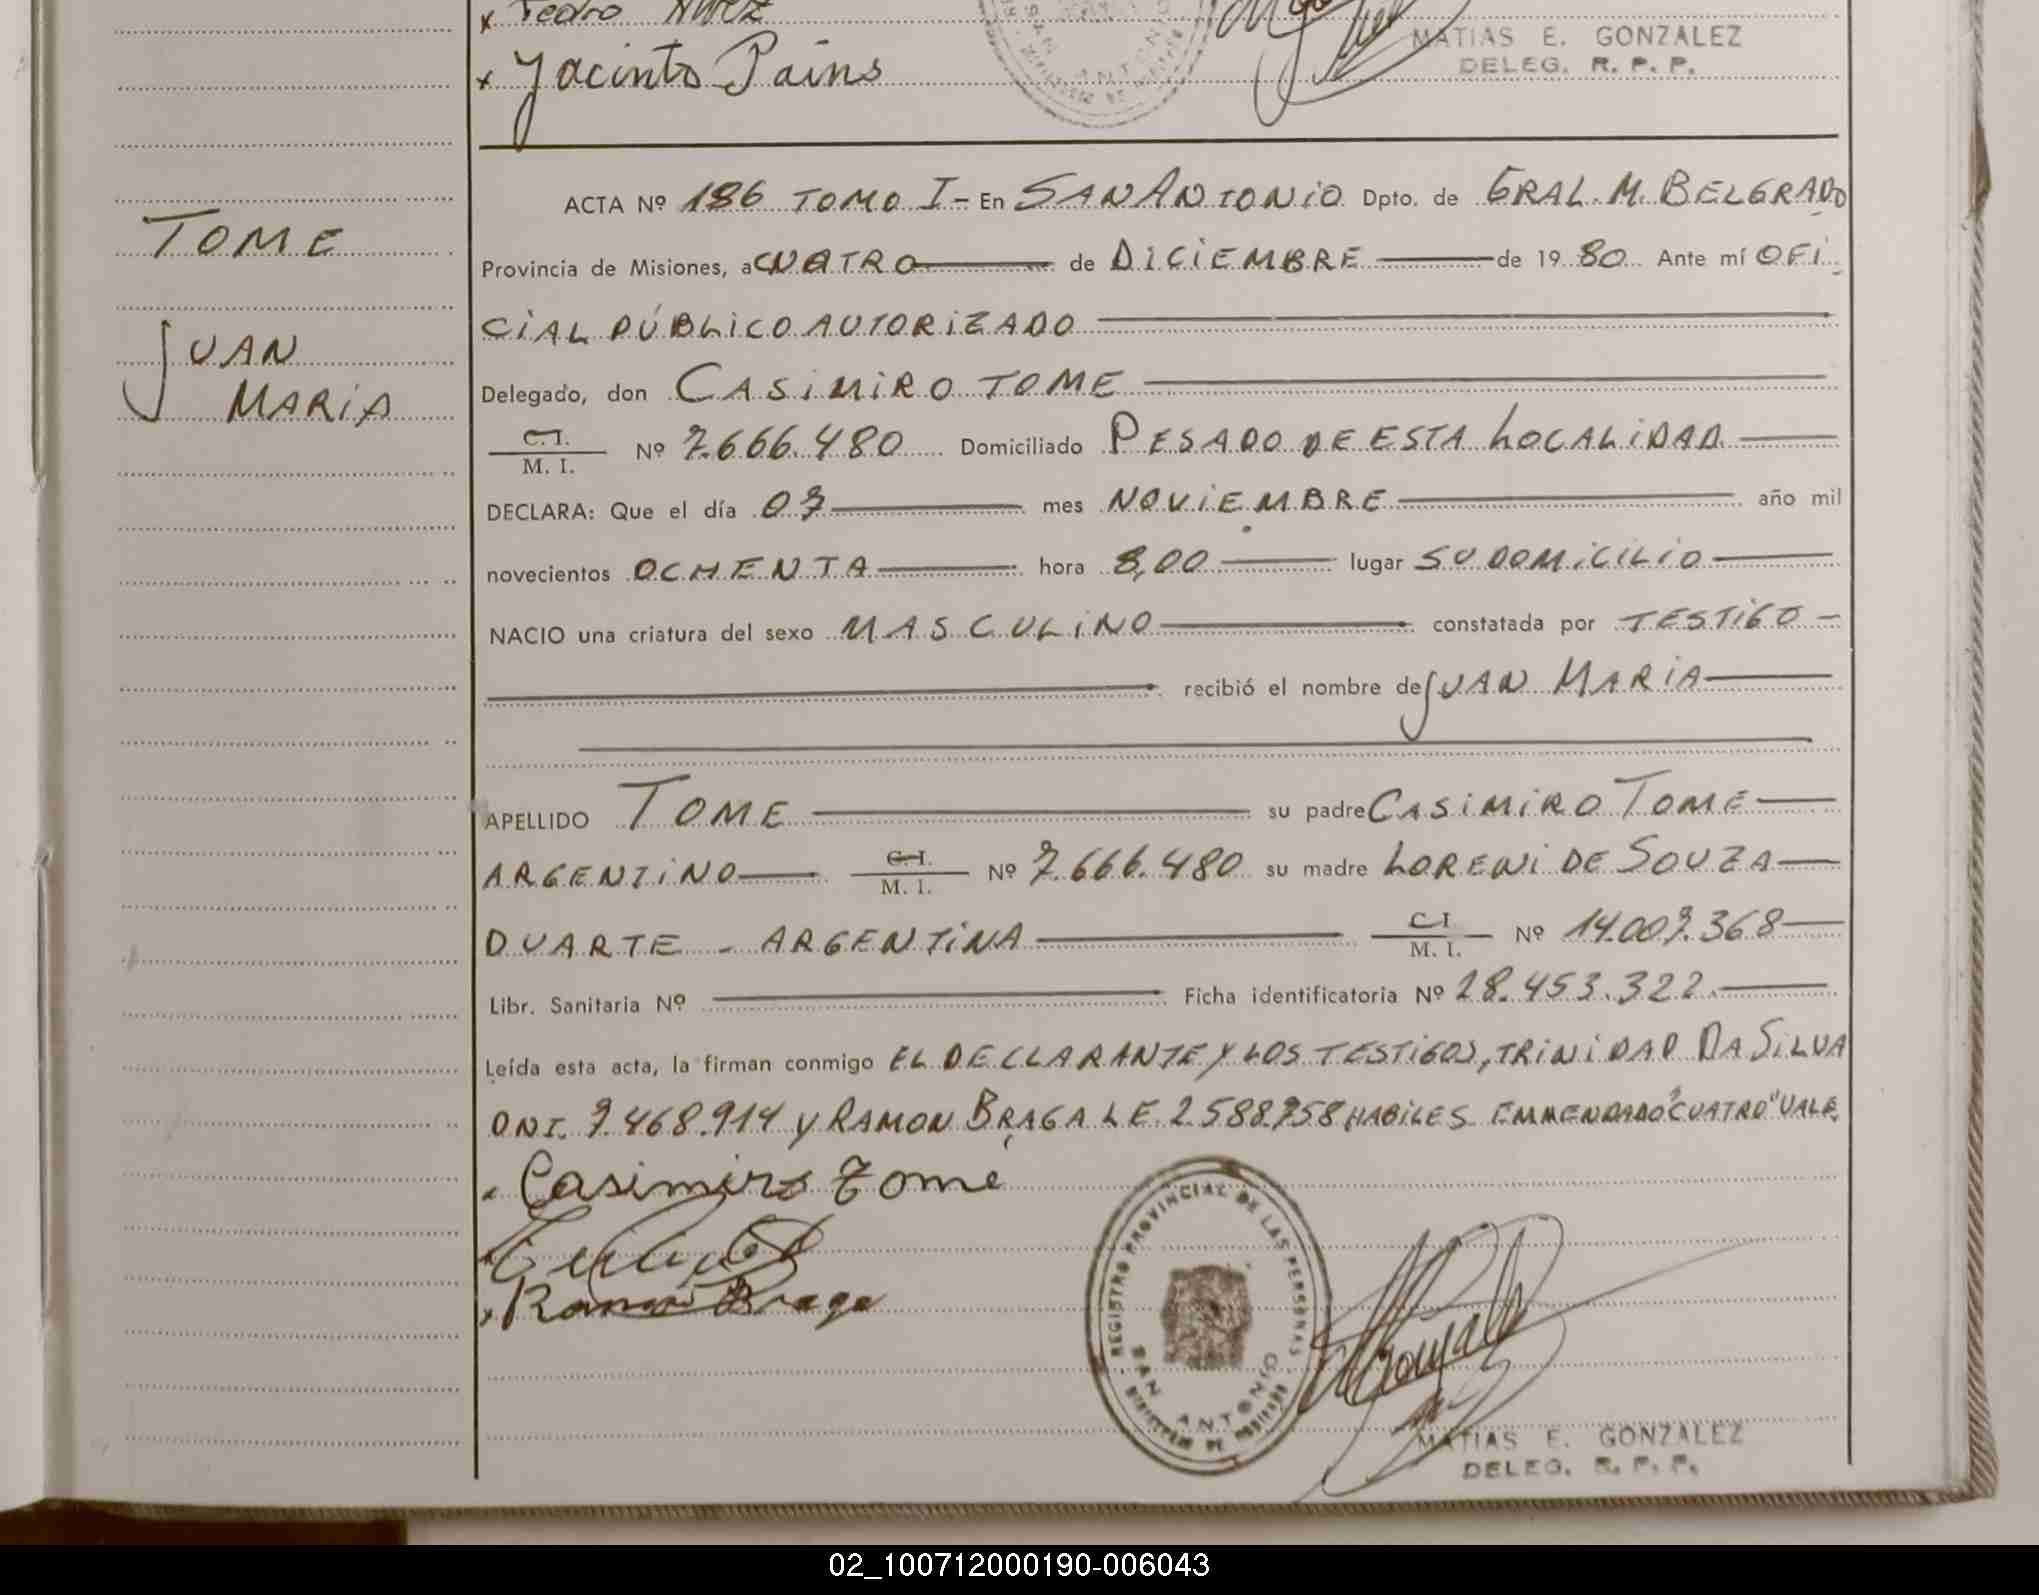 x Pedro
x Jacinto Pains
MATIAS E. GONZALEZ
DELEG. R. P. P.
TOME
JUAN
MARIA
ACTA Nº 186 TOMO I - En SAN ANTONIO Dpto. de GRAL. M. BELGRANO
Provincia de Misiones, a CUATRO de DICIEMBRE de 1980 Ante mí OFI
CIAL PÚBLICO AUTORIZADO
Delegado, don CASIMIRO TOME
C. I.
M. I. Nº 7.666.480 Domiciliado PESADO DE ESTA LOCALIDAD
DECLARA: Que el día 07 mes NOVIEMBRE año mil
novecientos OCHENTA hora 8,00 lugar SU DOMICILIO
NACIO una criatura del sexo MASCULINO constatada por TESTIGO -
recibió el nombre de JUAN MARIA
APELLIDO TOME su padre CASIMIRO TOME
ARGENTINO C. I.
M. I. Nº 7.666.480 su madre LORENI DE SOUZA
DUARTE - ARGENTINA C I
M. I. Nº 14.007.368
Libr. Sanitaria Nº Ficha identificatoria Nº 28.453.322.
Leída esta acta, la firman conmigo EL DECLARANTE Y LOS TESTIGOS, TRINIDAD DA SILVA
DNI. 7.468.914 y RAMON BRAGA L E. 2.588.758 HABILES EMMENDADO "CUATRO" VALE.
x Casimiro Tome
x Ramon Braga
REGISTRO PROVINCIAL DE LAS PERSONAS
SAN ANTONIO
MATIAS E. GONZALEZ
DELEG. R. P. P.
02_100712000190-006043